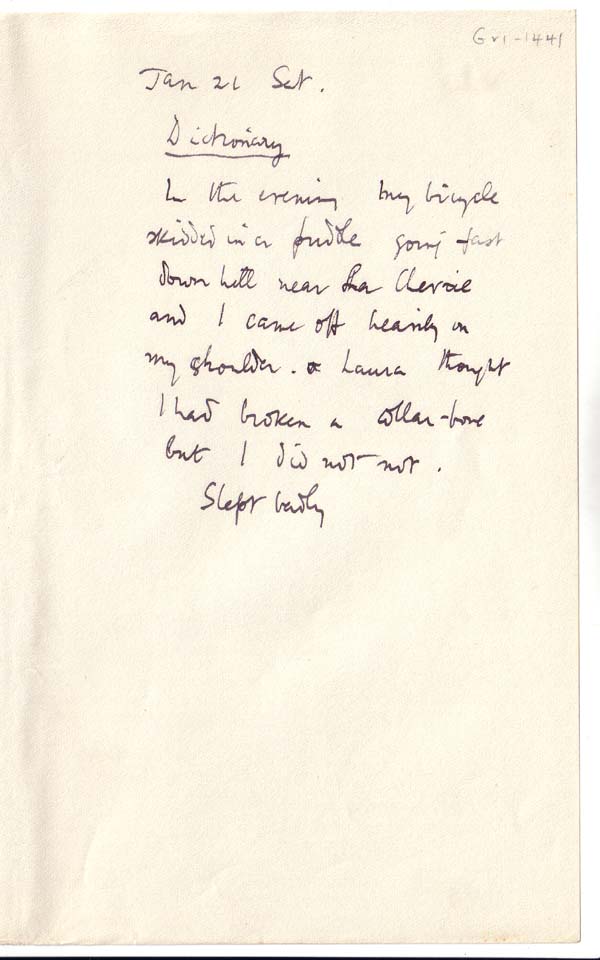 Gr1-1441
Jan 21 Sat.
Dictionary
In the evening my bicycle
skidded in a puddle going fast
down hill near La
and I came off heavily on
my shoulder. & Laura thought
I had broken a collar-bone
but I did not not.
Slept badly